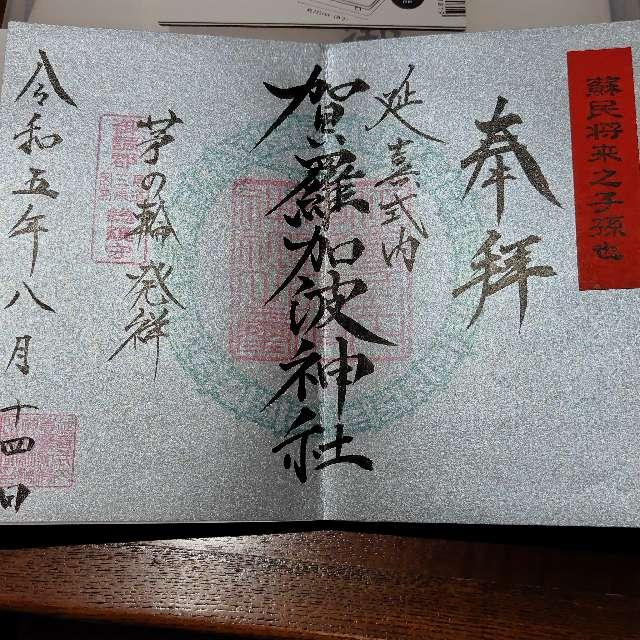 蘇民将来之子孫也
奉拝
延喜式内
賀羅加波神社
茅の輪発祥
令和五年八月十四日